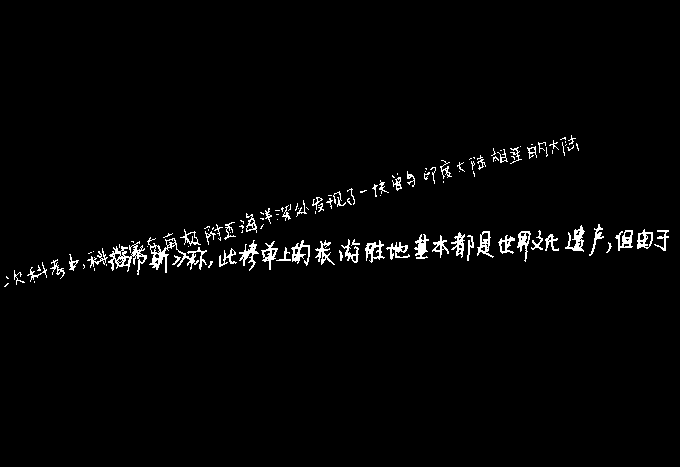 次科考中,科学家在南极附近海洋深处发现了一块曾与印度大陆相连的大陆
福布斯》称,此榜单上的旅游胜地基本都是世界文化遗产,但由于